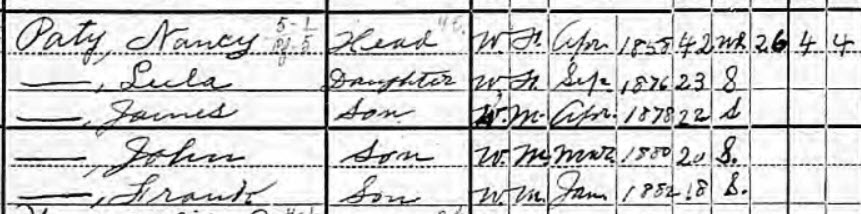 Paty, Nancy Head W. F. Apr 1858 42 Wd 26 4 4
—, Lula Daughter W F Sep 1876 23 S
—, James Son W. M. Apr. 1878 22 S
—, John Son W. M Mar 1880 20 S.
—, Frank Son W M. Jan 1882 18 S.